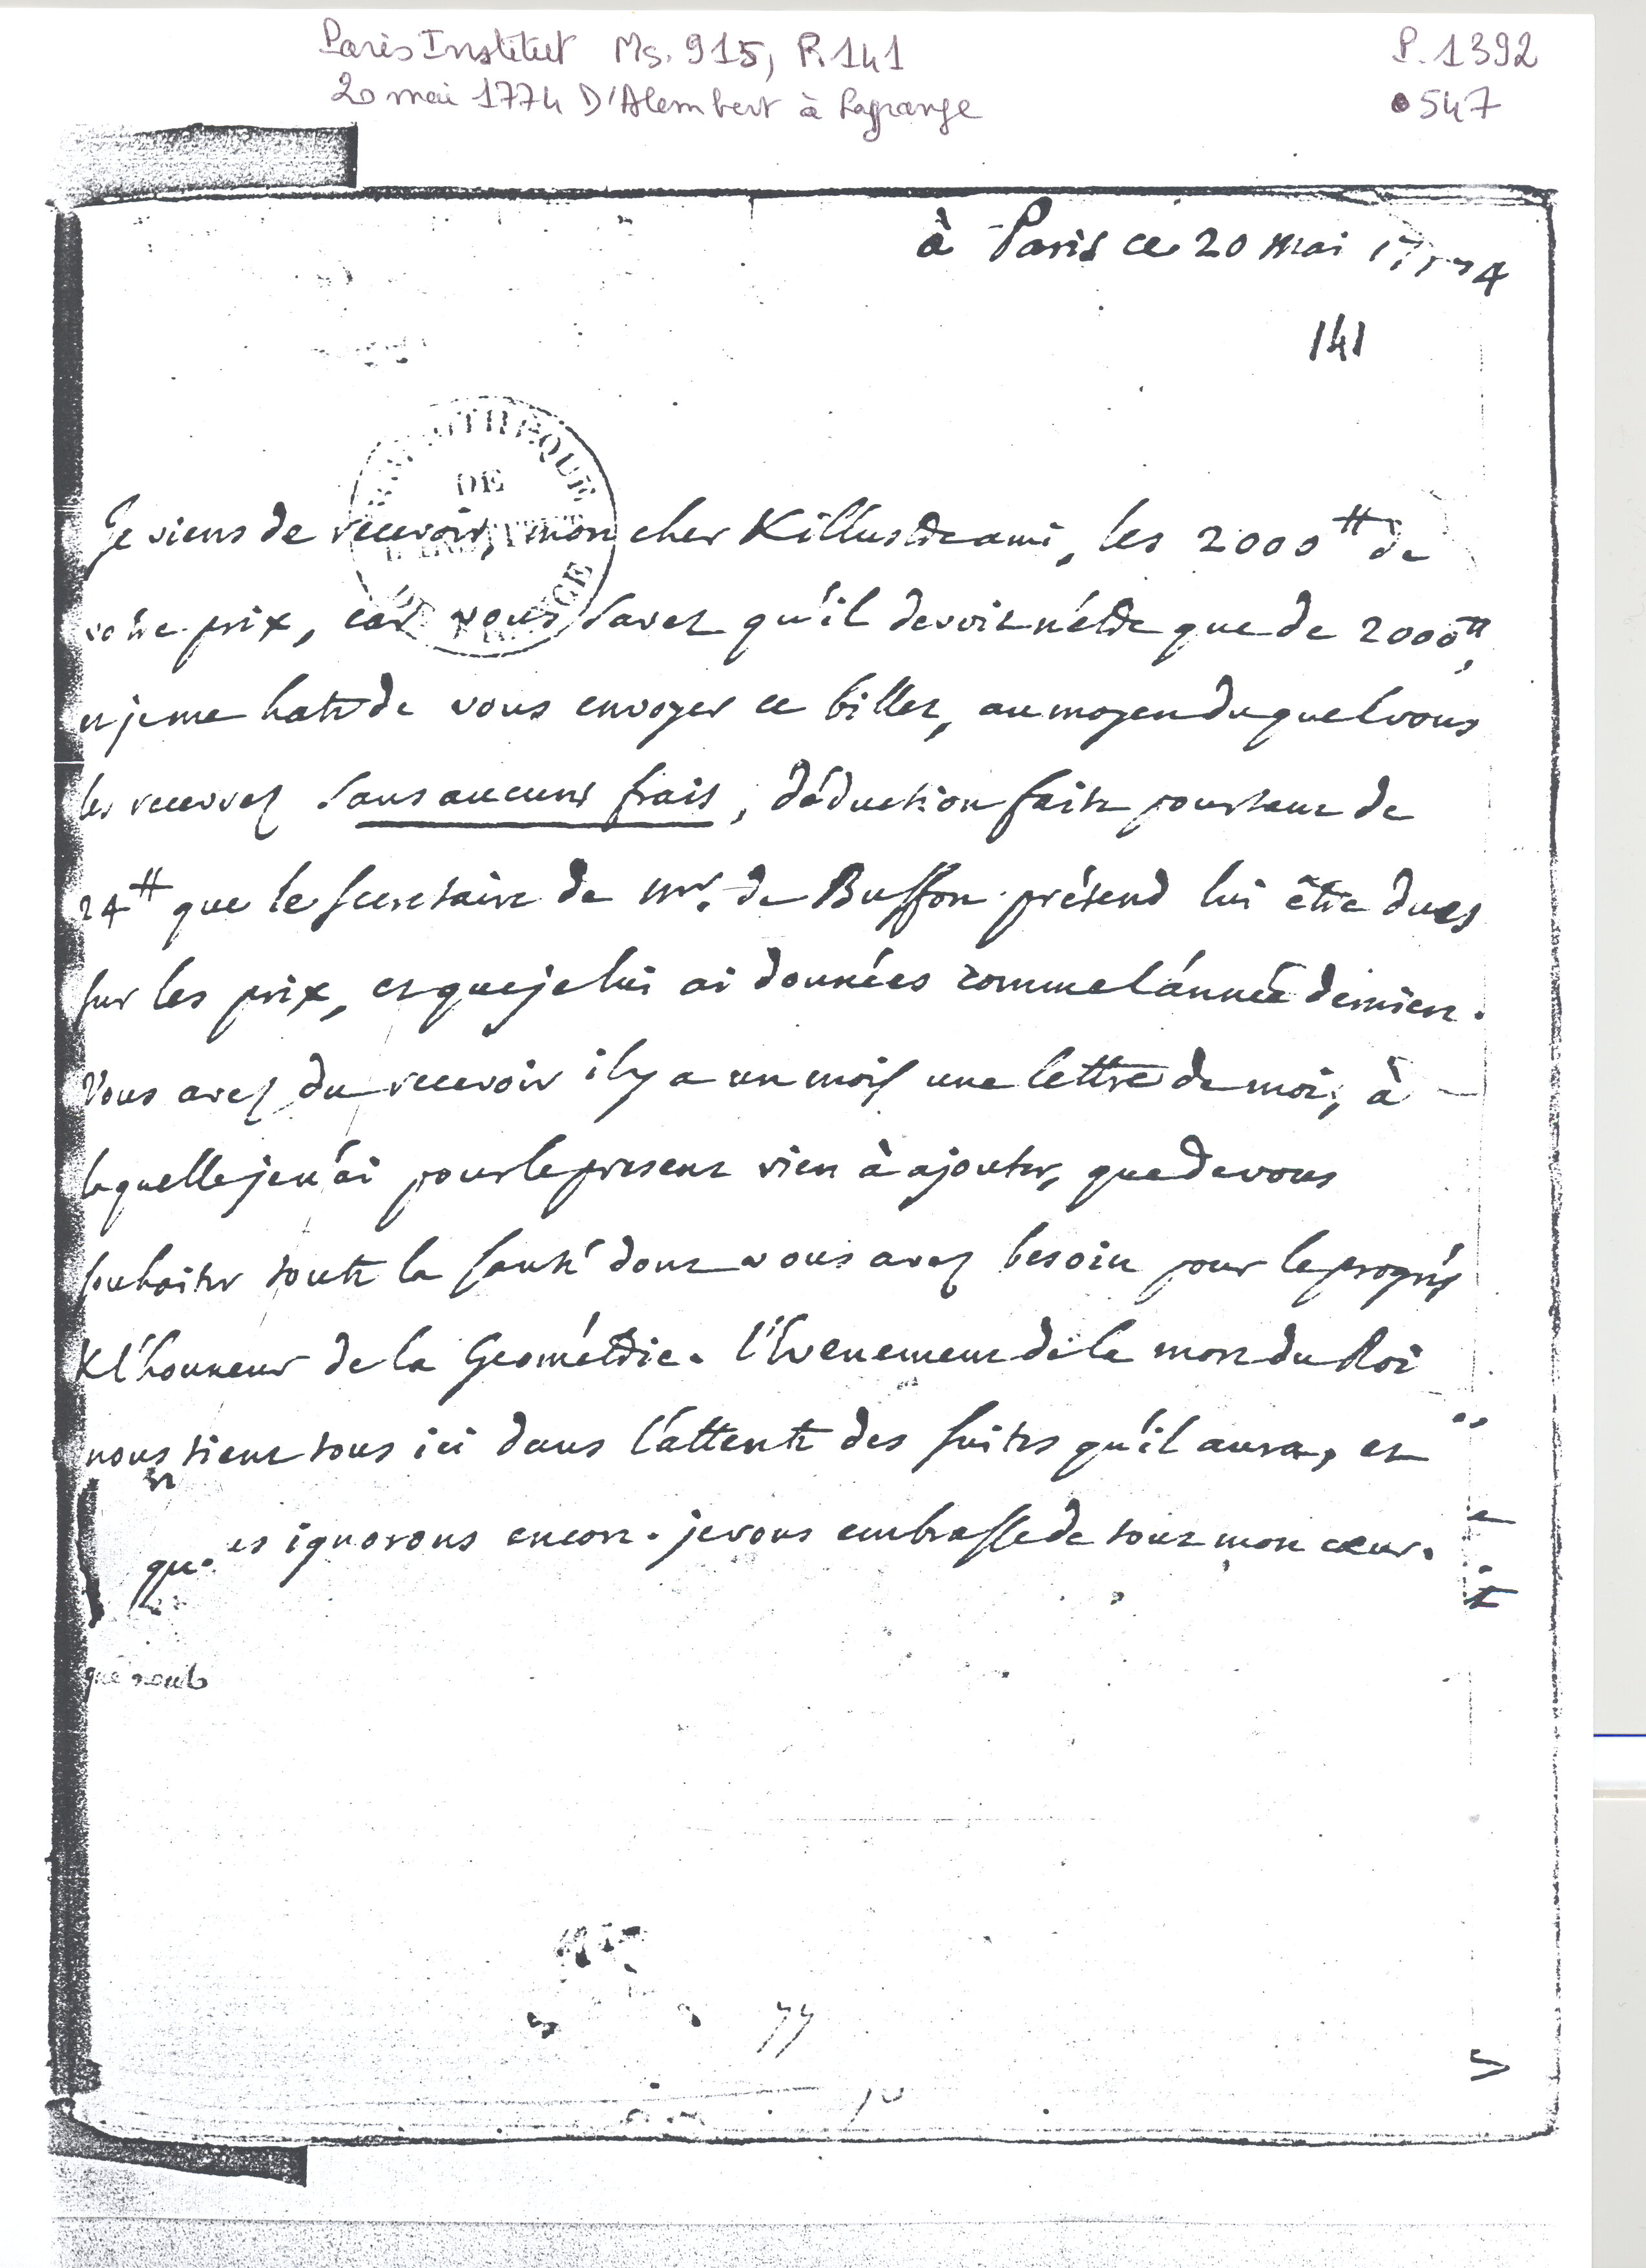 Paris Institut Ms. 915, P. 141
P. 1392
20 mai 1774 D'Alembert à Lagrange
547
à Paris ce 20 mai 1774
141
BIBLIOTHEQUE
DE
L'INSTITUT
DE FRANCE
Je viens de recevoir, mon cher & illustre ami, les 2000 ₶ de
votre prix, car vous savez qu'il devoit n'être que de 2000 ₶,
et je me hate de vous envoyer ce billet, au moyen du quel vous
les recevrez sans aucuns frais, déduction faite pourtant de
24 ₶ que le secretaire de Mr. de Buffon prétend lui être dues
sur les prix, et que je lui ai données comme l'année derniere.
Vous avez du recevoir il y a un mois une lettre de moi, à
laquelle je n'ai pour le present rien à ajouter, que de vous
souhaiter toute la santé dont vous avez besoin pour le progrès
& l'honneur de la Géométrie. l'Evenement de la mort du Roi
nous tient tous ici dans l'attente des suites qu'il aura, et
que ignorons encore. je vous embrasse de tout mon cœur.
que nous